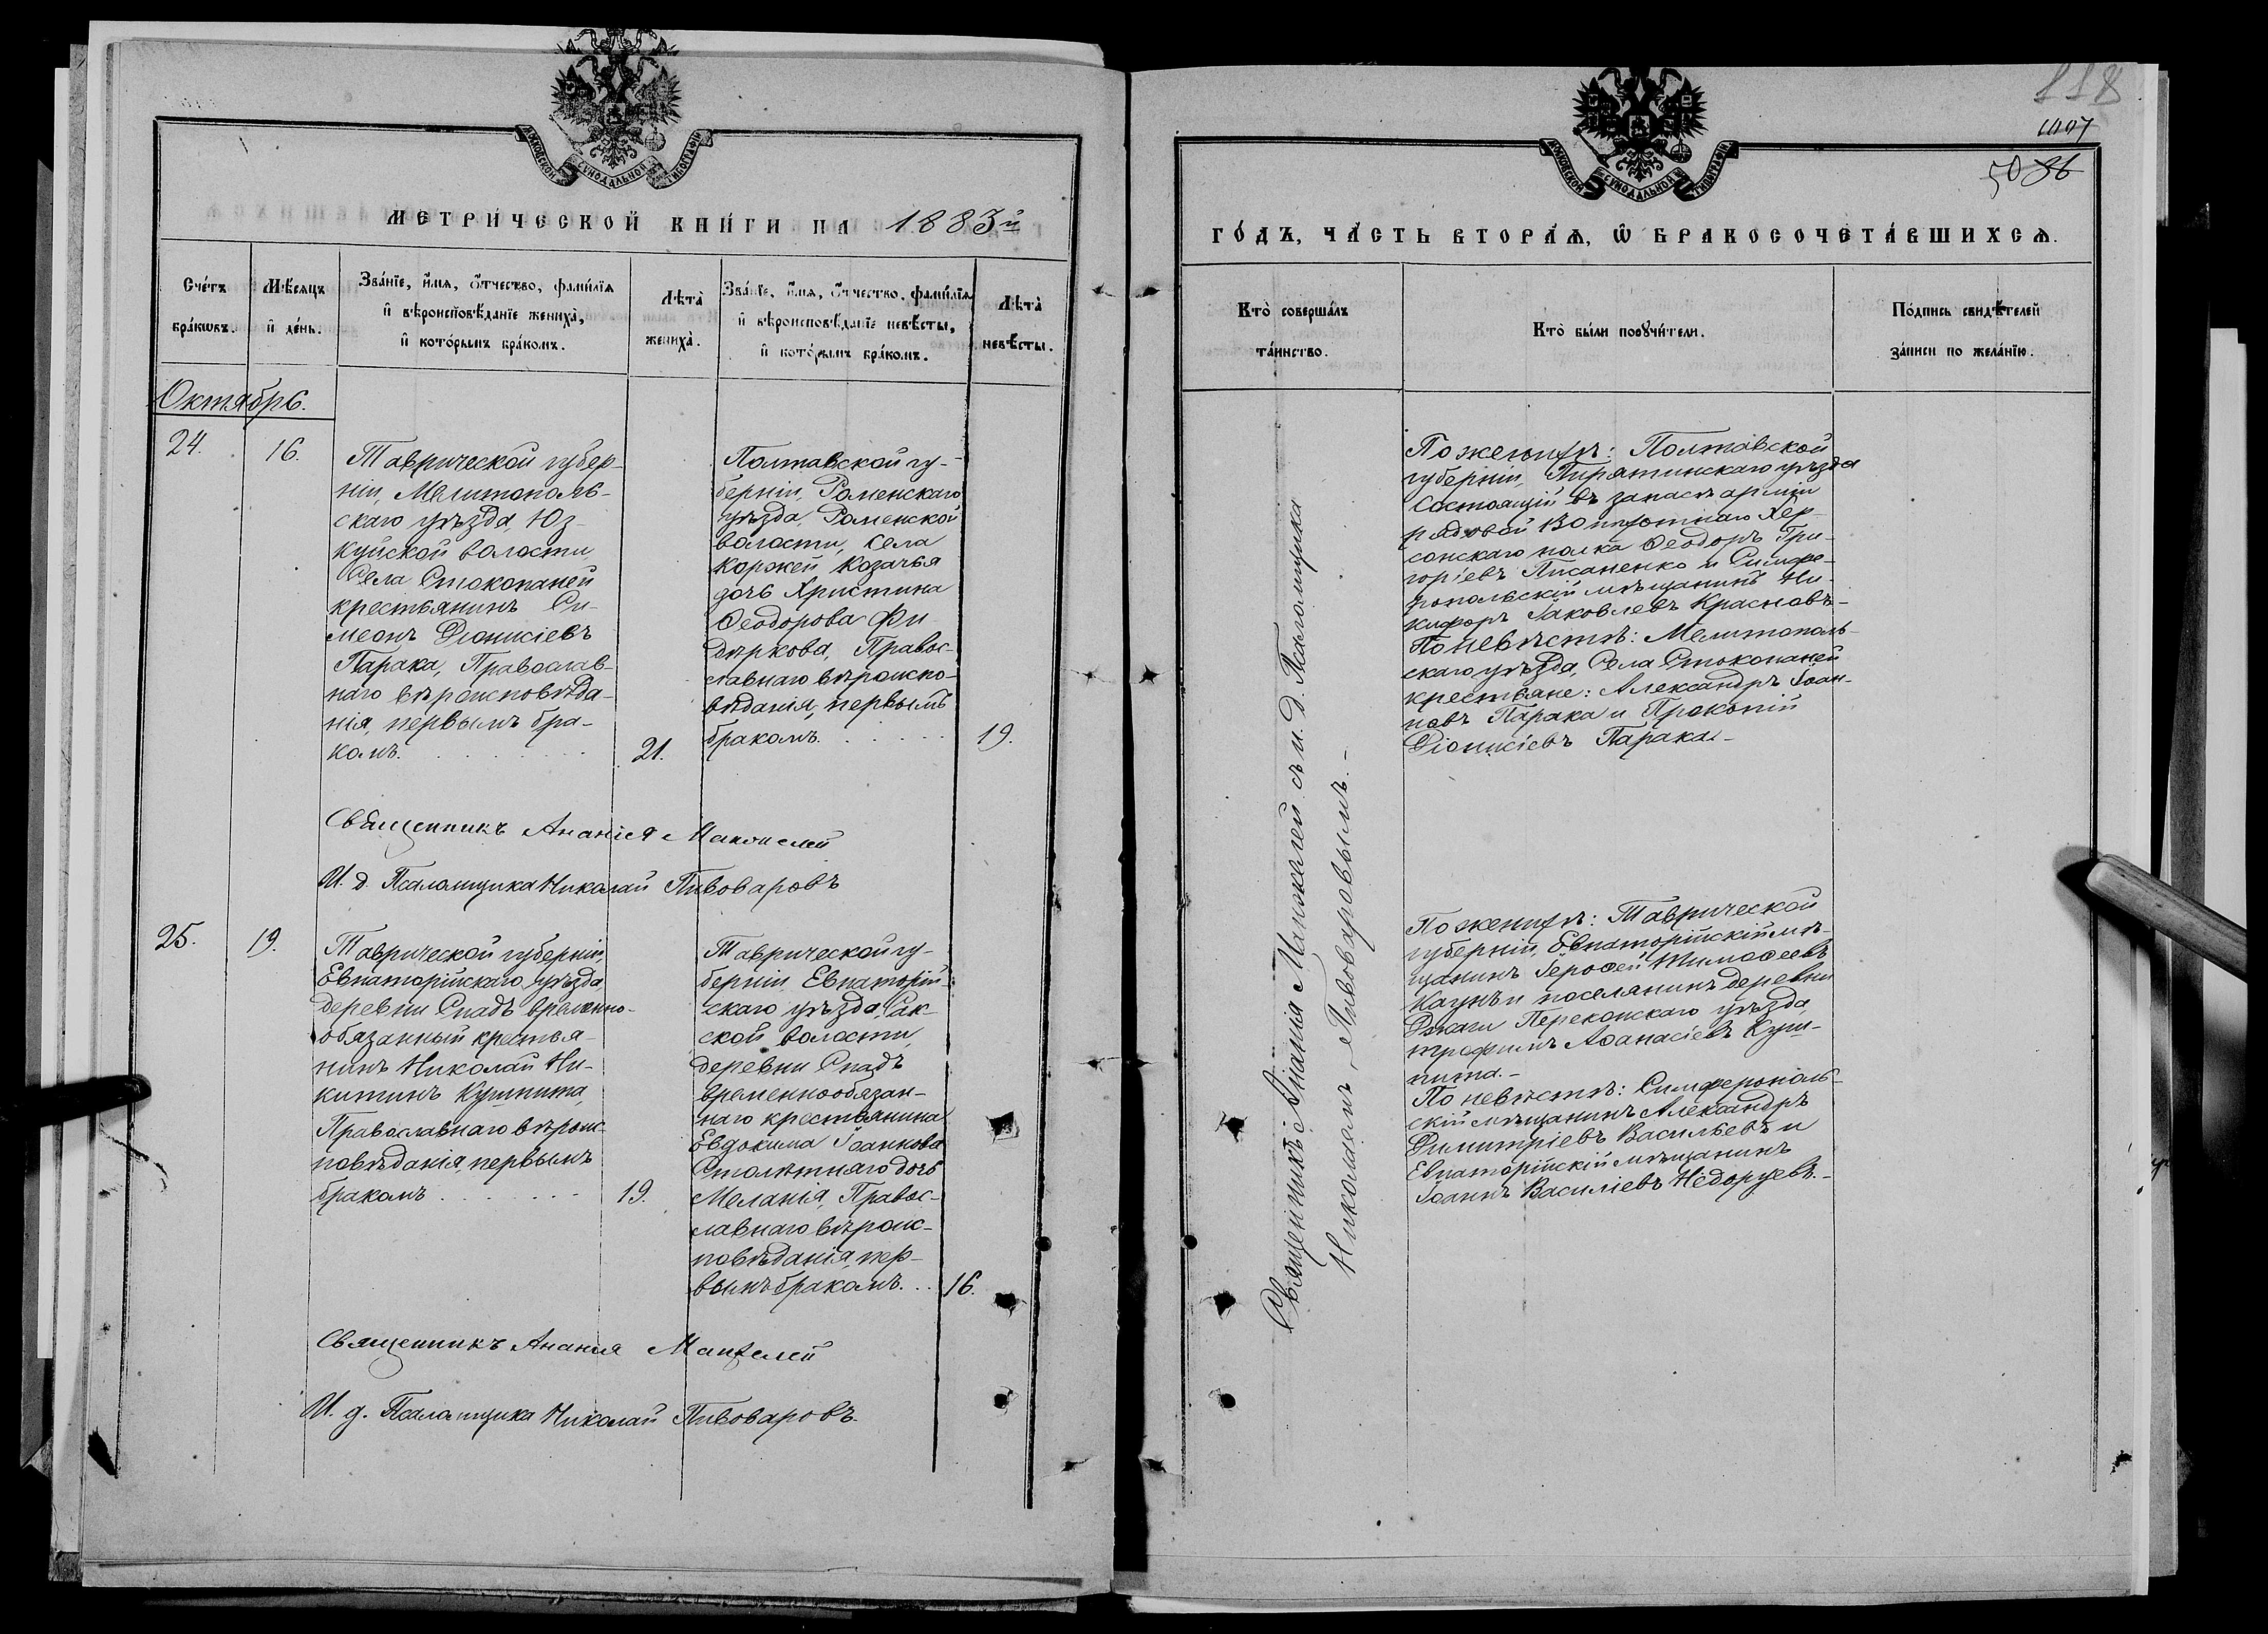 МОСКОВСКОЙ СѴНОДАЛЬНОЙ ТИПОГРАФІИ
МЕТРИ́ЧЕСКОЙ КНИ́ГИ НА 1883й
Сче́тъ бра́кѡвъ.
Мѣ́сяцъ и҆ де́нь.
Зва́нїе, и҆́мя, ѻ҆́тчество, фами́лїя
и҆ вѣроисповѣ́данїе жениха̀,
и҆ кото́рымъ бра́комъ.
Лѣта̀ жениха̀.
Зва́нїе, и҆́мя, ѻ҆́тчество, фами́лїя
и҆ вѣроисповѣ́данїе невѣ́сты,
и҆ кото́рымъ бра́комъ.
Лѣта̀ невѣ́сты.
Октябрь.
24.
16.
Таврической губер-
ніи, Мелитополь-
скаго уѣзда, Юз-
куйской волости
Села Стокопаней
крестьянинъ Си-
меонъ Діонисіевъ
Парака, Православ-
наго вѣроисповѣда-
нія, первымъ бра-
комъ.
21.
Полтавской гу-
берніи, Роменскаго
уѣзда, Роменской
волости, села
Коржей Козачья
дочь Христина
Ѳеодорова Фи-
диркова, Правос-
лавнаго вѣроиспо-
вѣданія, первымъ
бракомъ.
19.
Священникъ Ананія
И. д. Псаломщика Николай Пивоваровъ
25.
19.
Таврической губерніи
Евпаторійскаго уѣзда
деревни Спадъ временно-
обязанный крестья-
нинъ Николай Ни-
китинъ Кушпита,
Православнаго вѣроис-
повѣданія, первымъ
бракомъ
19.
Таврической гу-
берніи Евпаторій-
скаго уѣзда, Сак-
ской волости,
деревни Спадъ
временнообязан-
наго крестьянина
Евдокима Іоаннова
Столѣтняго дочь
Меланія, Правос-
лавнаго вѣроис-
повѣданія, пер-
вымъ бракомъ.
16.
Священникъ Ананія
И. д. Псаломщика Николай Пивоваровъ.
118
1007
50 86
МОСКОВСКОЙ СѴНОДАЛЬНОЙ ТИПОГРАФІИ
ГО́ДЪ, ЧА́СТЬ ВТОРА́Ѧ, Ѡ҆ БРАКОСОЧЕТА́ВШИХСѦ.
Кто̀ соверша́лъ
та́инство.
Кто̀ бы́ли порꙋчи́тели.
По́дпись свидѣ́телей
за́писи по жела́нїю.
Священникъ Ананія Манжелей съ и. д. Псаломщика
Николаемъ Пивоваровымъ.-
По женихѣ: Полтавской
губерніи, Пирятинскаго уѣзда
Состоящій въ запасѣ арміи
рядовой пѣхотнаго Хер-
сонскаго полка Ѳеодоръ Гри-
горіевъ Писаненко и Симфе-
ропольскій мѣщанинъ Ни-
кифоръ Іаковлевъ Красновъ-
По невѣстѣ: Мелитополь-
скаго уѣзда, Села Стокопаней
крестьяне: Александръ Іоан-
новъ Парака и Прокопій
Діонисіевъ Парака-
По женихѣ: Таврической
губерніи, Евпаторійскій мѣ-
щанинъ Іероѳей Тимоѳеевъ
Кацунъ и поселянинъ деревни
Джаги Перекопскаго уѣзда,
трофимъ Аѳанасіевъ Куш-
пита.-
По невѣстѣ: Симферополь-
скій мѣщанинъ Александръ
Димитріевъ Васильевъ и
Евпаторійскій мѣщанинъ
Іоаннъ Василіевъ Недоруевъ.-